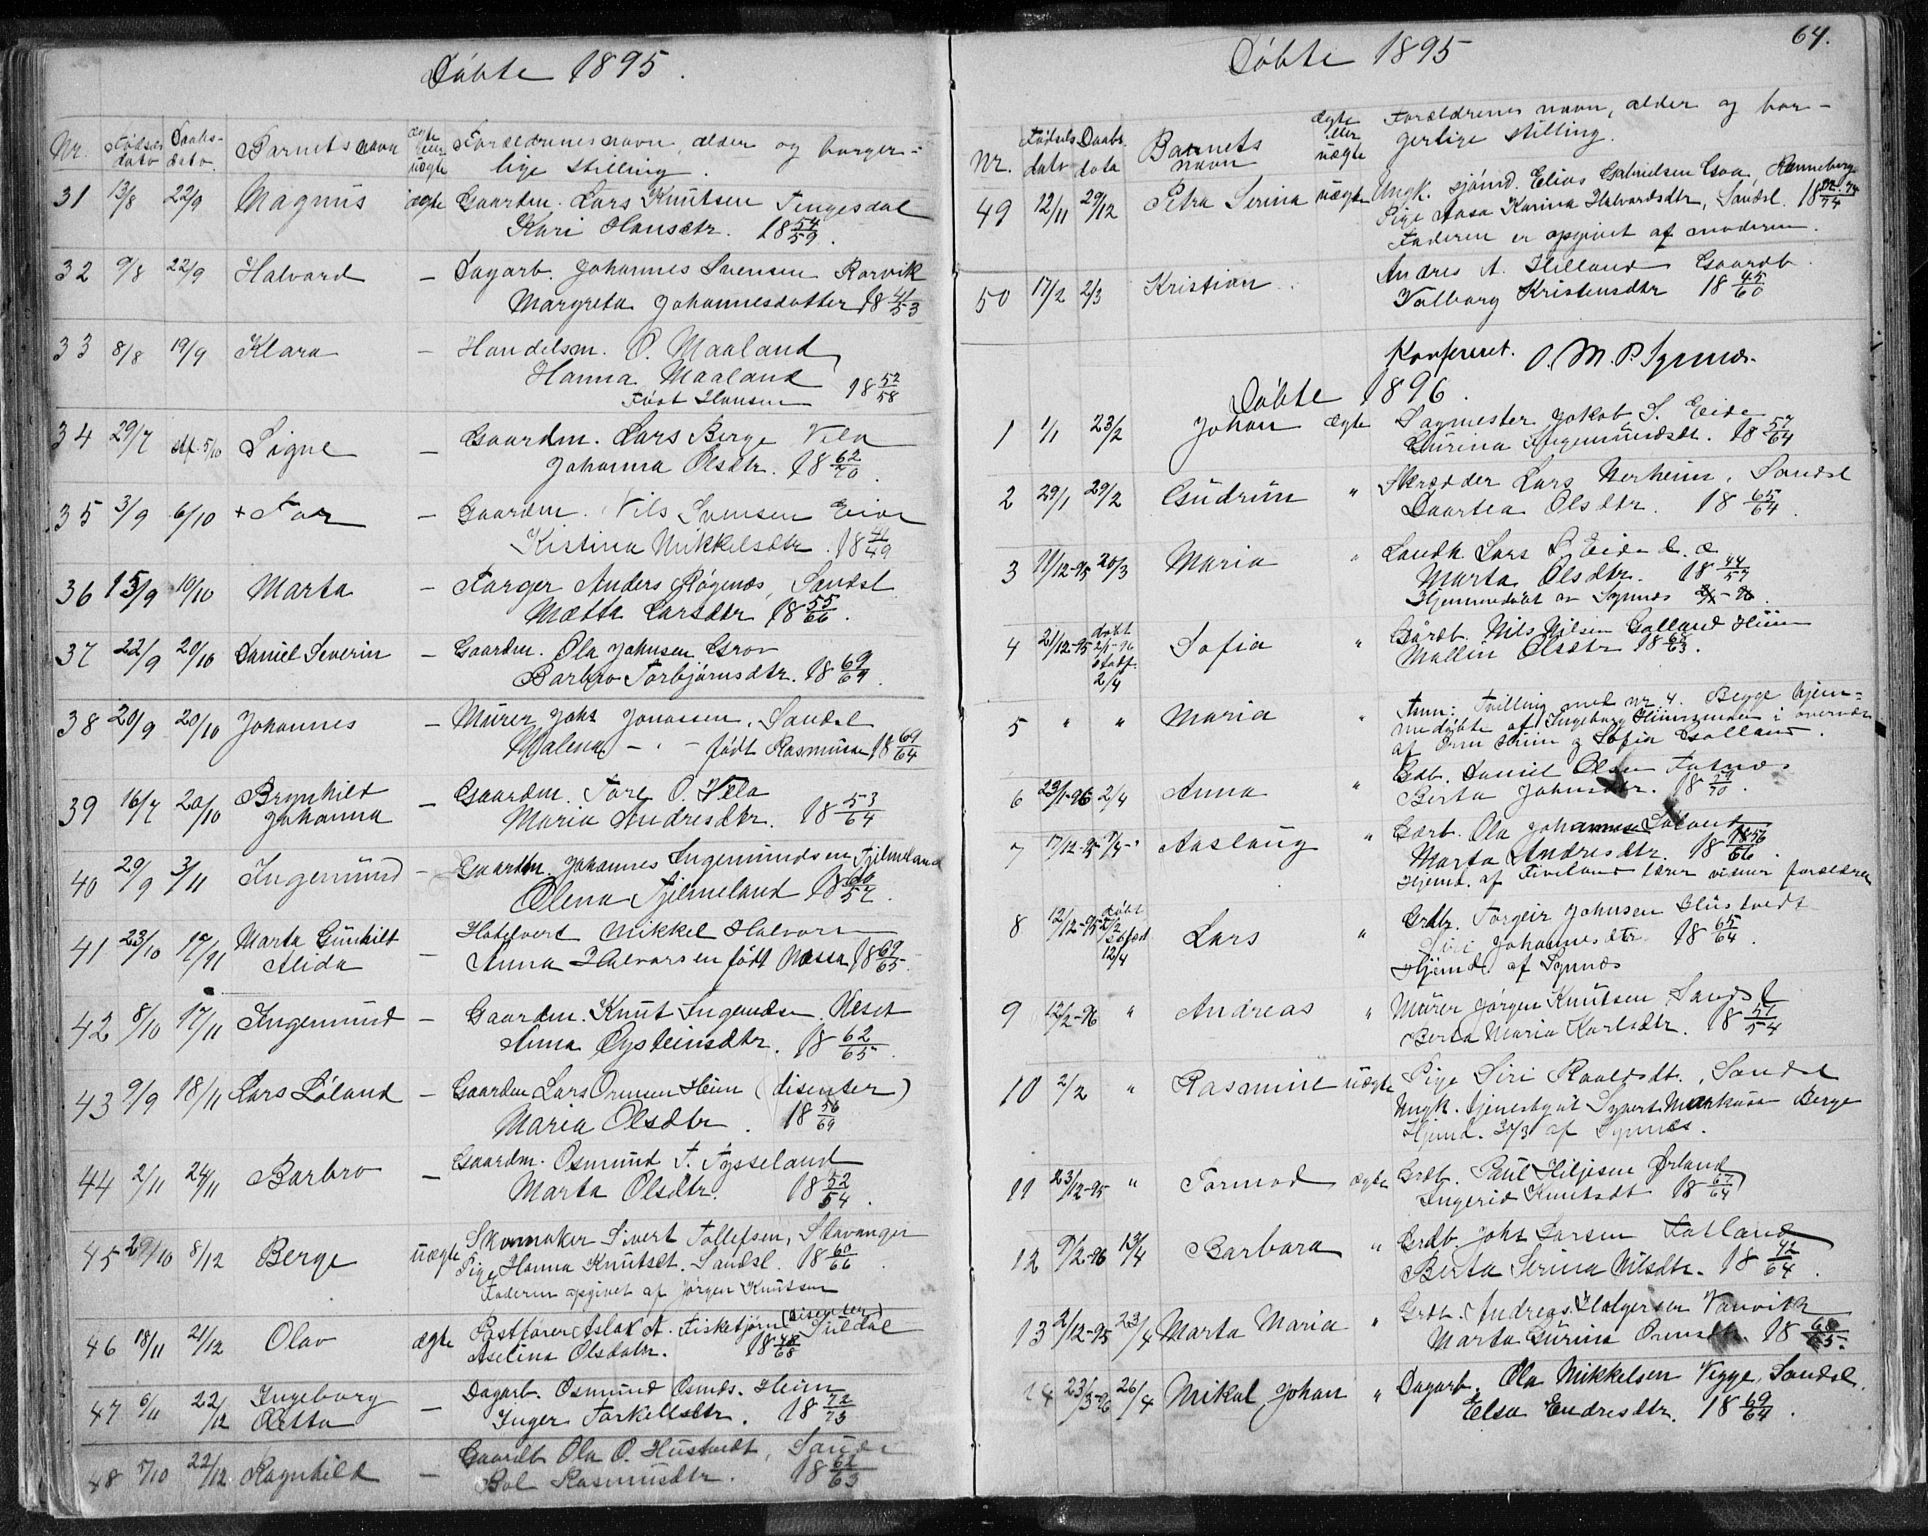 Døbte 1895.
Nr. Fødselsdato Daabsdato Barnets navn ægte eller uægte Forældrenes navn, alder og borger-
lige stilling.
31 13/8 22/9 Magnus ægte Gaardm. Lars Knutsen Tengesdal
Kari Hansdtr. 18 54/59.
32 9/8 22/9 Halvard — Dagarb. Johannes Svensen Rørvik
Margreta Johannesdotter 18 41/53
33 8/8 19/9 Klara — Handelsm. O. Maaland
Hanna Maaland 18 52/58
født Hansen
34 29/7 5/10 Signe — Gaardm. Lars Berge Vela
Johanna Olsdtr. 18 62/70.
35 3/9 6/10 + Tor — Gaardm. Nils Svensen Eide
Kistina Mikkelsdtr. 18 41/49
36 15/9 19/10 Marta — Farger Anders Høgenes, Sandsl
Mætta Larsdtr 18 55/66.
37 22/9 20/10 Daniel Severin — Gaardm. Ola Johnsen Grov
Barbro Torbjørnsdtr. 18 69/69.
38 20/9 20/10 Johannes — Murer Johs Jonassen, Sandsl
Malena — " — født Rasmussen 18 69/64
39 16/7 20/10 Brynhild — Gaardm. Tore O. Vela
Johanna Maria Andresdtr. 18 53/64
40 29/9 3/11 Ingemund — Gaardm. Johannes Ingemundsen Fjelmeland
Olena Fjelmeland 18 60/57.
41 23/10 17/11 Marta Gunhilt — Hotelvert Mikkel Halvorsen
Alida Anna Halvorsen født Næssa 18 69/65.
42 8/10 17/11 Ingemund — Gaardm. Knut Ingemdsn. Veset
Anna Øysteinsdtr. 18 62/65.
43 9/9 18/11 Lars Løland — Gaardm Lars Ormsen Heim (disenter)
Maria Olsdtr. 18 56/69
44 2/11 24/11 Barbro — Gaardm. Osmund T. Tysseland
Marta Olsdtr. 18 52/54.
45 29/10 8/12 Berge uægte Skomaker Sivert Tollefsen, Stavanger
Pige Hanna Knutsdt. Sandsl. 18 60/66.
Faderen opgivet af Jørgen Knutsen
46 18/11 21/12 Olav ægte Postfører Aslak A. Fisketjørn (disenter) Suldal
Aselina Olsdatr. 18 48/68
47 6/11 22/12 Ingeborg — Dagarb. Osmund Osmds. Heim
Oletta Inger Torkellsdtr. 18 72/73
48 7/10 22/12 Ragnhild — Gaardb Ola O. Hustvedt, Saude
Bol Rasmusdtr. 18 62/63
Døbte 1895
64.
Nr. Fødselsdato Daabsdato Barnets navn ægte eller uægte Forældrenes navn, alder og bor-
gerlige stilling.
49 12/11 29/12 Petra Serina uægte Ungk. sjømd. Elias Gabrielsen Goa, Renneberg
Pige Aasa Karina Halvardsdtr, Sandsl. 18
Faderen er opgivet af moderen.
50 17/2 2/3 Kristian Andres A. Hilland Gaardb.
Valborg Kristensdtr 18 45/60
Konfereret. O. M. P. Synnes.
Døbte 1896.
1 1/1 23/2 Johan ægte Sagmester Jakob S. Eide
Gurina Ingemundsdt. 18 57/64
2 29/1 29/2 Gudrun " Skrædder Lars Nerheim, Sandsl
Daartea Olsdtr. 18 65/64.
3 11/12-95 20/3 Maria " Landh Lars L. Eide d. æ
Marta Olsdtr. 18 44/57
Hjemmedøbt av Synnes
4 21/12-95 døbt 2/1-96 2/4 Sofia " Gardb. Nils Nilsen Galland Heim
Mallin Olsdtr 18 68/63.
5 " " Maria " Anm: Tvilling med nr 4. Begge hjem=
medøbte af Ingeborg i overvær
af Orm Heim og Sofia Galland.
6 23/1-96 2/4 Anna " Grdb. Daniel Olsen
Berta Johnsdtr. 18 59/70.
7 17/12-95 Aaslaug " Garb. Ola Johannessen
Marta Andresdtr. 18 56/66.
Hjemd. af Tiveland lærer visner forældre
8 12/12-95 døbt 12/4 Lars " Grdb. Torgeir Johnsen Hustvedt
Siri Johannesdtr 18 65/64.
Hjemd. af Synnes
9 12/2-96 " Andreas " Murer Jørgen Knutsen, Sandsl
Berta Maria Karlsdtr. 18 51/54
10 2/2 " Rasmine uægte Pige Siri Roaldsdt., Sandsl
Ungk. tjenestgut Sivert Markusn Berge
Hjemd. af Synnes.
11 23/12-95 " Tormod ægte Grdb. Paul Hiljesen Ørland
Ingerid Knutsdt 18 67/64
12 9/2-96 13/4 Barbara " Grdb. Johs Larsen Fatland
Berta Serina Nilsdtr. 18 42/64.
13 2/12-95 23/4 Marta Maria " Grdb. Andreas Holgersen Vanvik
Marta Gurina Ormsdtr. 18 60/65.
14 23/3-96 26/4 Mikal Johan " Dagarb. Ola Mikkelsen Vigge, Sandsl.
Elsa Endresdtr. 18 69/64.